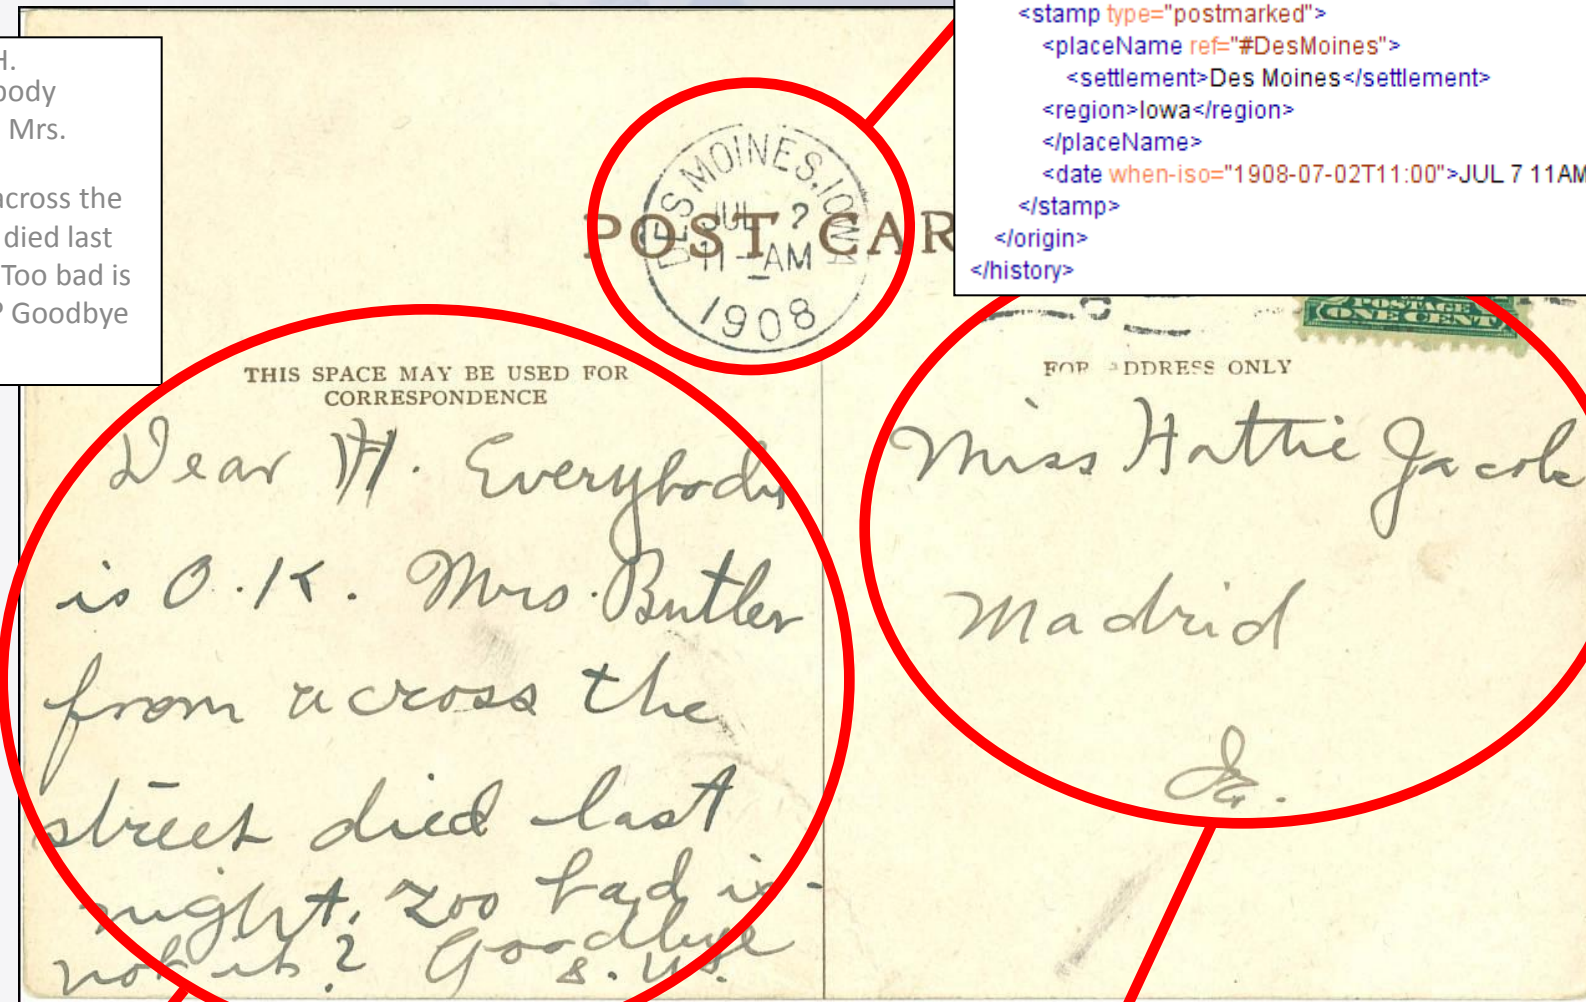 H.
body
Mrs.
across the
died last
Too bad is
? Goodbye
<stamp type="postmarked">
<placeName ref="#DesMoines">
<settlement>Des Moines</settlement>
<region>Iowa</region>
</placeName>
<date when-iso="1908-07-02T11:00">JUL 7 11AM
</stamp>
</origin>
</history>
DES MOINES, IOWA
JUL 2
11-AM
1908
POST CAR
POSTAGE
ONE CENT
THIS SPACE MAY BE USED FOR
CORRESPONDENCE
Dear H. Everybody
is O.K. Mrs. Butler
from across the
street died last
night. Too bad is
not it? Goodbye
FOR ADDRESS ONLY
Miss Hattie Jacob
Madrid
Ia.